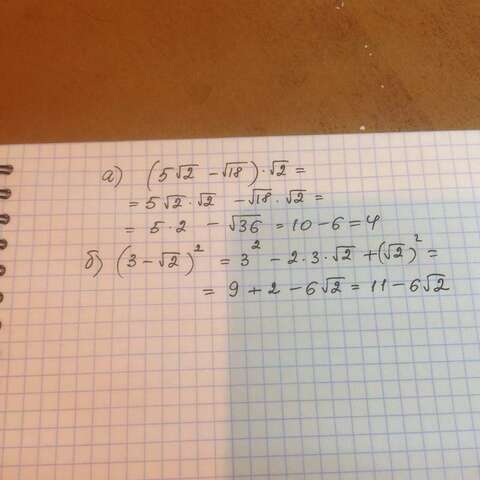 а) (5√2 - √18)·√2 =
= 5√2·√2 - √18·√2 =
= 5·2 - √36 = 10-6=4
б) (3-√2)² = 3² - 2·3·√2 + (√2)² =
= 9+2-6√2 = 11-6√2